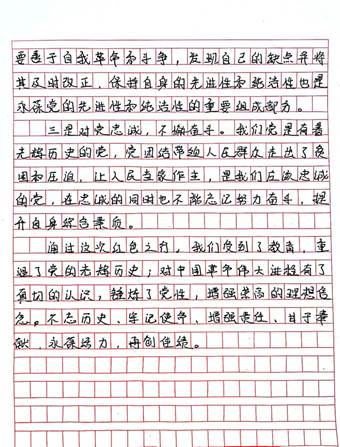 要勇于自我革命和斗争，发现自己的缺点并将
其及时改正，保持自身的先进性和纯洁性也是
永葆党的先进性和纯洁性的重要组成部分。
三是对党忠诚，不懈奋斗。我们党是有着
光辉历史的党，党团结带领人民群众走出了贫
困和压迫，让人民当家作主，是我们应该忠诚
的党，在忠诚的同时也不能忘记努力奋斗，提
升自身综合素质。
通过这次红色之行，我们受到了教育，重
温了党的光辉历史；对中国革命伟大进程有了
真切的认识；锤炼了党性，增强崇高的理想信
念。不忘历史、牢记使命、增强责任、甘于奉
献，永葆活力，再创佳绩。